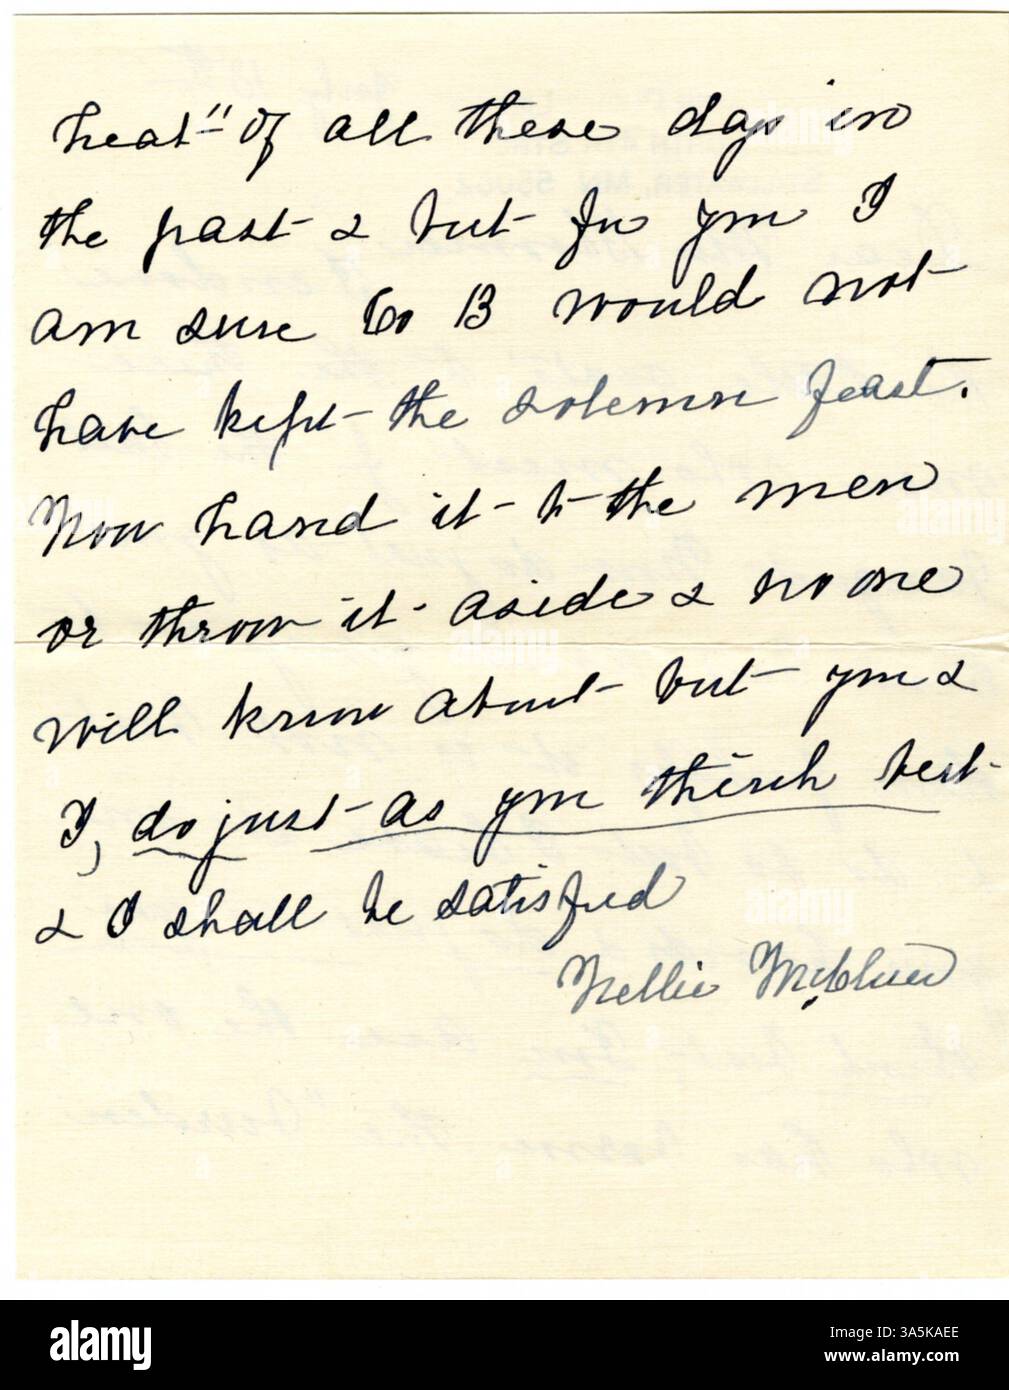 heat" of all these days in
the past & but for you I
am sure Co B would not
have kept the solemn feast.
Now hand it to the men
or throw it aside & no one
will know about but you &
I, do just as you think best
& I shall be satisfied
Nellie McClure
alamy
Image ID: A3A5KAEE
www.alamy.com